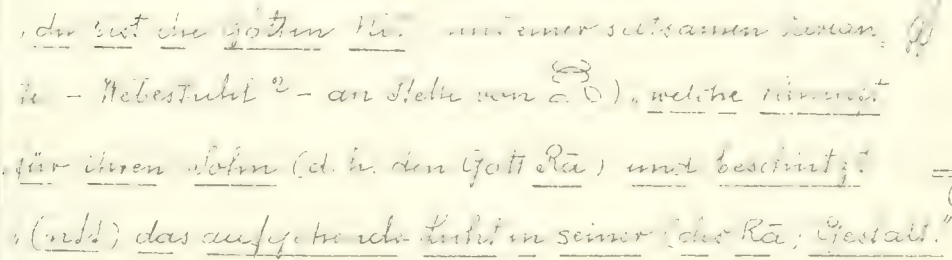 „du bist die göttin Ni. mit einer seltsamen Varian.
te – Webestuhl ²⁾ – an Stelle von ), welche nimmt
für ihren Sohn (d. h. den Gott Rā) und beschützt
(ndd) das aufgehende Licht in seiner (des Rā) Gestalt.“